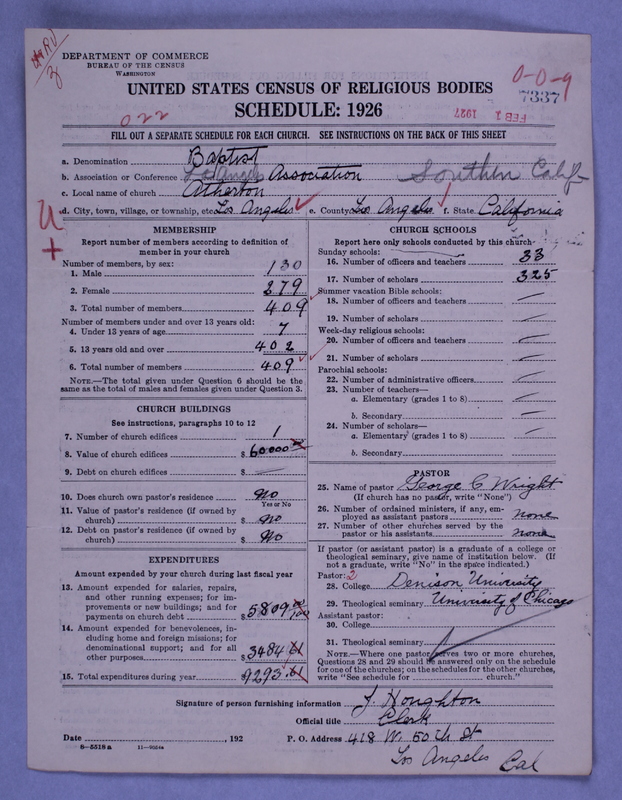 DEPARTMENT OF COMMERCE
BUREAU OF THE CENSUS
WASHINGTON
0-0-9
7337
FEB 1 1927
UNITED STATES CENSUS OF RELIGIOUS BODIES
SCHEDULE: 1926
022
FILL OUT A SEPARATE SCHEDULE FOR EACH CHURCH. SEE INSTRUCTIONS ON THE BACK OF THIS SHEET
a. Denomination Baptist
b. Association or Conference Los Angeles Association Southern Calif-
c. Local name of church Atherton
d. City, town, village, or township, etc. Los Angeles e. County Los Angeles f. State California
U
+
MEMBERSHIP
Report number of members according to definition of
member in your church
Number of members, by sex:
1. Male 130
2. Female 279
3. Total number of members 409
Number of members under and over 13 years old:
4. Under 13 years of age 7
5. 13 years old and over 402
6. Total number of members 409
NOTE.—The total given under Question 6 should be the
same as the total of males and females given under Question 3.
CHURCH BUILDINGS
See instructions, paragraphs 10 to 12
7. Number of church edifices 1
8. Value of church edifices $ 60000
9. Debt on church edifices $ —
10. Does church own pastor's residence No
Yes or No
11. Value of pastor's residence (if owned by
church) $ No
12. Debt on pastor's residence (if owned by
church) $ No
EXPENDITURES
Amount expended by your church during last fiscal year
13. Amount expended for salaries, repairs,
and other running expenses; for im-
provements or new buildings; and for
payments on church debt $ 5809.00/100
14. Amount expended for benevolences, in-
cluding home and foreign missions; for
denominational support; and for all
other purposes $ 3484.61
15. Total expenditures during year $ 9293.61
CHURCH SCHOOLS
Report here only schools conducted by this church
Sunday schools:
16. Number of officers and teachers 33
17. Number of scholars 325
Summer vacation Bible schools:
18. Number of officers and teachers —
19. Number of scholars —
Week-day religious schools:
20. Number of officers and teachers —
21. Number of scholars —
Parochial schools:
22. Number of administrative officers —
23. Number of teachers—
a. Elementary (grades 1 to 8) —
b. Secondary —
24. Number of scholars—
a. Elementary (grades 1 to 8) —
b. Secondary
PASTOR
25. Name of pastor George C Wright
(If church has no pastor, write "None")
26. Number of ordained ministers, if any, em-
ployed as assistant pastors none
27. Number of other churches served by the
pastor or his assistants none
If pastor (or assistant pastor) is a graduate of a college or
theological seminary, give name of institution below. (If
not a graduate, write "No" in the space indicated.)
Pastor: 2
28. College Denison University
29. Theological seminary University of Chicago
Assistant pastor:
30. College
31. Theological seminary
NOTE.—Where one pastor serves two or more churches,
Questions 28 and 29 should be answered only on the schedule
for one of the churches; on the schedules for the other churches,
write "See schedule for church."
Signature of person furnishing information J. Houghton
Official title Clerk
Date , 192 P. O. Address 418 W. 50th St
8—5518 a
Los Angeles Cal